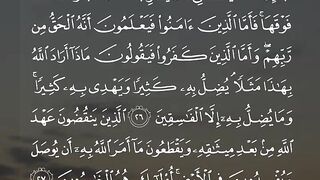 فَوْقَهَا ۚ فَأَمَّا الَّذِينَ ءَامَنُوا فَيَعْلَمُونَ أَنَّهُ الْحَقُّ مِن
رَّبِّهِمْ ۖ وَأَمَّا الَّذِينَ كَفَرُوا فَيَقُولُونَ مَاذَا أَرَادَ اللَّهُ
بِهَٰذَا مَثَلًا ۘ يُضِلُّ بِهِۦ كَثِيرًا وَيَهْدِي بِهِۦ كَثِيرًا ۚ
وَمَا يُضِلُّ بِهِۦٓ إِلَّا الْفَٰسِقِينَ ٢٦ الَّذِينَ يَنقُضُونَ عَهْدَ
اللَّهِ مِنۢ بَعْدِ مِيثَٰقِهِۦ وَيَقْطَعُونَ مَآ أَمَرَ اللَّهُ بِهِۦٓ أَن يُوصَلَ